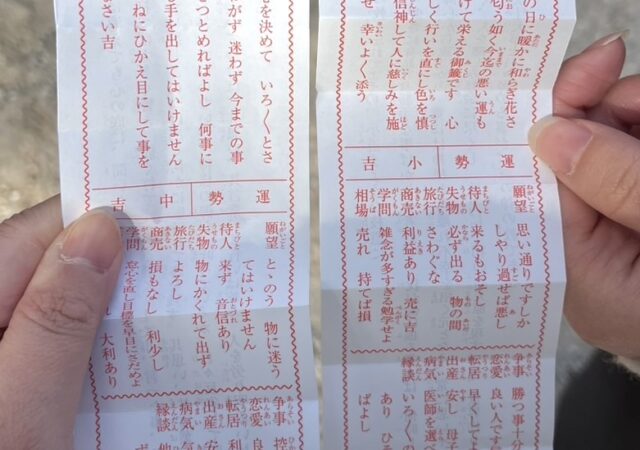 の日に暖かに和らぎ花さ
匂う如く今迄の悪い運も
けて栄える御籤です 心
しく行いを直にし色を慎
信神して人に慈しみを施
せ 幸いよく添う
運勢 小吉
願望 思い通りですしか
しやり過せば悪し
待人 来るもおそし
失物 必ず出る 物の間
旅行 さわぐな
商売 利益あり 売に吉
学問 雑念が多すぎる勉学せよ
相場 売れ 持てば損
争事 勝つ事十分
恋愛 良い人です
転居 早くして
出産 安し 母子
病気 医師を選べ
縁談 いろ〱の
あり ひ
ばよし
を決めて いろ〱とさ
がず 迷わず 今までの事
とつとめればよし 何事に
手を出してはいけません
ねにひかえ目にして事を
さい吉
運勢 中吉
願望 とゝのう 物に迷う
てはいけません
待人 来ず 音信あり
失物 物にかくれて出ず
旅行 よろし
商売 損もなし 利少し
学問 忘心を直し目標を早目にさだめよ
れ 大利あり
争事 控
恋愛 良
転居 利
出産 安
病気 気
縁談 他